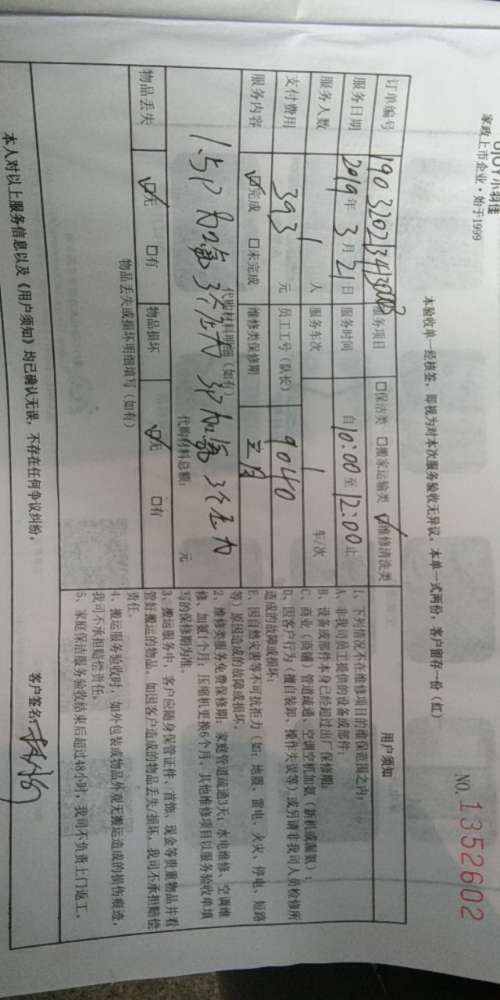 UJOY小羽佳
家政上市企业·始于1999
NO. 1352602
本验收单一经核签，即视为对本次服务验收无异议。本单一式两份，客户留存一份（红）
订单编号 服务项目 □保洁类 □搬家运输类 ☑维修清洗类
服务日期 2019年3月21日 服务时间 自10:00至12:00止
服务人数 1 人 服务车次 1 车/次
支付费用 393 元 员工工号（队长） 9040
服务内容 ☑完成 □未完成 维修类保修期
代购材料明细（如有）
1.5P 加氟 3个压力 3P加氟 3个压力
代购材料总额： 元
物品丢失 ☑无 □有 物品损坏 ☑无 □有
物品丢失或损坏明细填写（如有）
用户须知
1、下列情况不在维修项目的维保范围之内：
A、非我司员工提供的设备或部件；
B、设备或部件本身已经超过出厂保修期；
C、商业（商铺）管道疏通、空调空机加氟（新机或漏氟）；
D、因客户行为（擅自装卸、操作失误等）或另请非我司人员检修所
造成的故障或损坏；
E、因自然灾害等不可抗拒力（如：地震、雷电、火灾、停电、短路
等）原因造成的故障或损坏。
2、维修类服务免费保修期：家庭管道疏通3天；水电维修、空调维
修、加氟1个月，压缩机更换6个月，其他维修项目以服务验收单填
写的保修期为准。
3、搬运服务中，客户应随身保管证件、首饰、现金等贵重物品并看
管好搬运的物品。如因客户造成的物品丢失/损坏，我司不承担赔偿
责任。
4、搬运服务验收时，如外包装或物品外观无搬运造成的损伤痕迹，
我司不承担赔偿责任。
5、家庭保洁服务验收结束后超过48小时，我司不负责上门返工。
本人对以上服务信息以及《用户须知》均已确认无误，不存在任何争议纠纷。 客户签名：